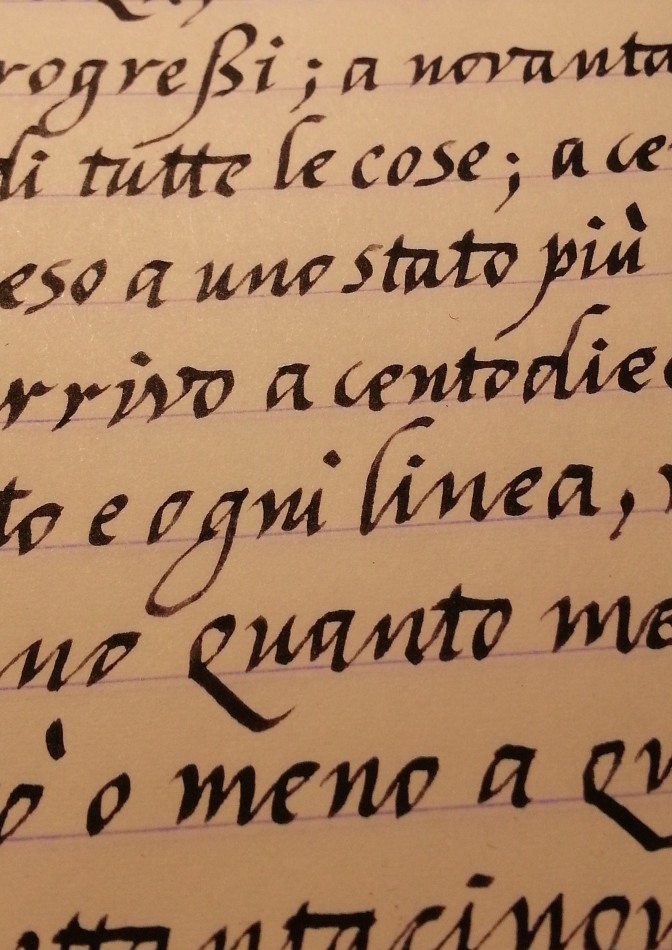 rogreßi; a novanta
di tutte le cose; a ce
eso a uno stato più
rrivo a centodiec
to e ogni linea,
no quanto me
ò o meno a qu
ttantacinqu